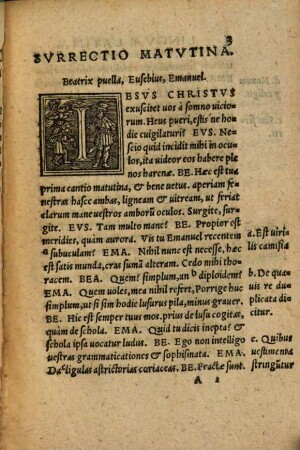 3
SVRRECTIO MATVTINA.
Beatrix puella, Eusebius, Emanuel.
IESVS CHRISTVS
exuscitet uos à somno uicio-
rum. Heus pueri, estis ne ho
die euigilaturi? EVS. Ne-
scio quid incidit mihi in ocu-
los, ita uideor eos habere ple
nos harenæ. BE. Hæc est tua
prima cantio matutina, & bene uetus. aperiam fe-
nestras hasce ambas, ligneam & uitream, ut feriat
clarum mane uestros amborũ oculos. Surgite, sur-
gite. EVS. Tam multo mane? BE. Propior est
meridies, quàm aurora. Vis tu Emanuel recentem
a subuculam? EMA. Nihil nunc est necesse, hæc
est satis munda, cras sumã alteram. Cedo mihi tho-
racem. BEA. Quem? simplum, an b diploidem?
EMA. Quem uoles, mea nihil refert, Porrige huc
simplum, ut si sim hodie lusurus pila, minus grauer.
BE. Hic est semper tuus mos. prius de lusu cogitas,
quàm de schola. EMA. Quid tu dicis inepta? &
schola ipsa uocatur ludus. BE. Ego non intelligo
uestras grammaticationes & sophismata. EMA.
Da c ligulas astrictorias coriaceas. BE. Fractæ sunt.
A 2
a. Est uiri-
lis camisia
b. De qua-
uis re du-
plicata di-
citur.
c. Quibus
uestimenta
stringũtur